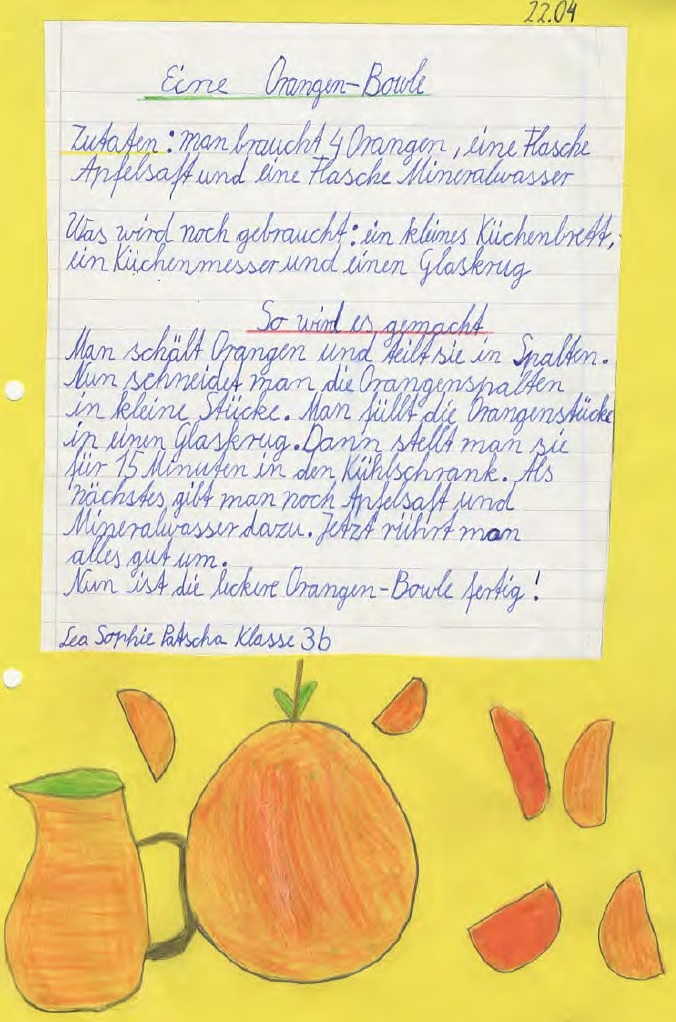 22.04
Eine Orangen-Bowle
Zutaten: man braucht 4 Orangen, eine Flasche
Apfelsaft und eine Flasche Mineralwasser
Was wird noch gebraucht: ein kleines Küchenbrett,
ein Küchenmesser und einen Glaskrug
So wird es gemacht
Man schält Orangen und teilt sie in Spalten.
Nun schneidet man die Orangenspalten
in kleine Stücke. Man füllt die Orangenstücke
in einen Glaskrug. Dann stellt man sie
für 15 Minuten in den Kühlschrank. Als
nächstes gibt man noch Apfelsaft und
Mineralwasser dazu. Jetzt rührt man
alles gut um.
Nun ist die leckere Orangen-Bowle fertig!
Lea Sophie Patscha Klasse 3b